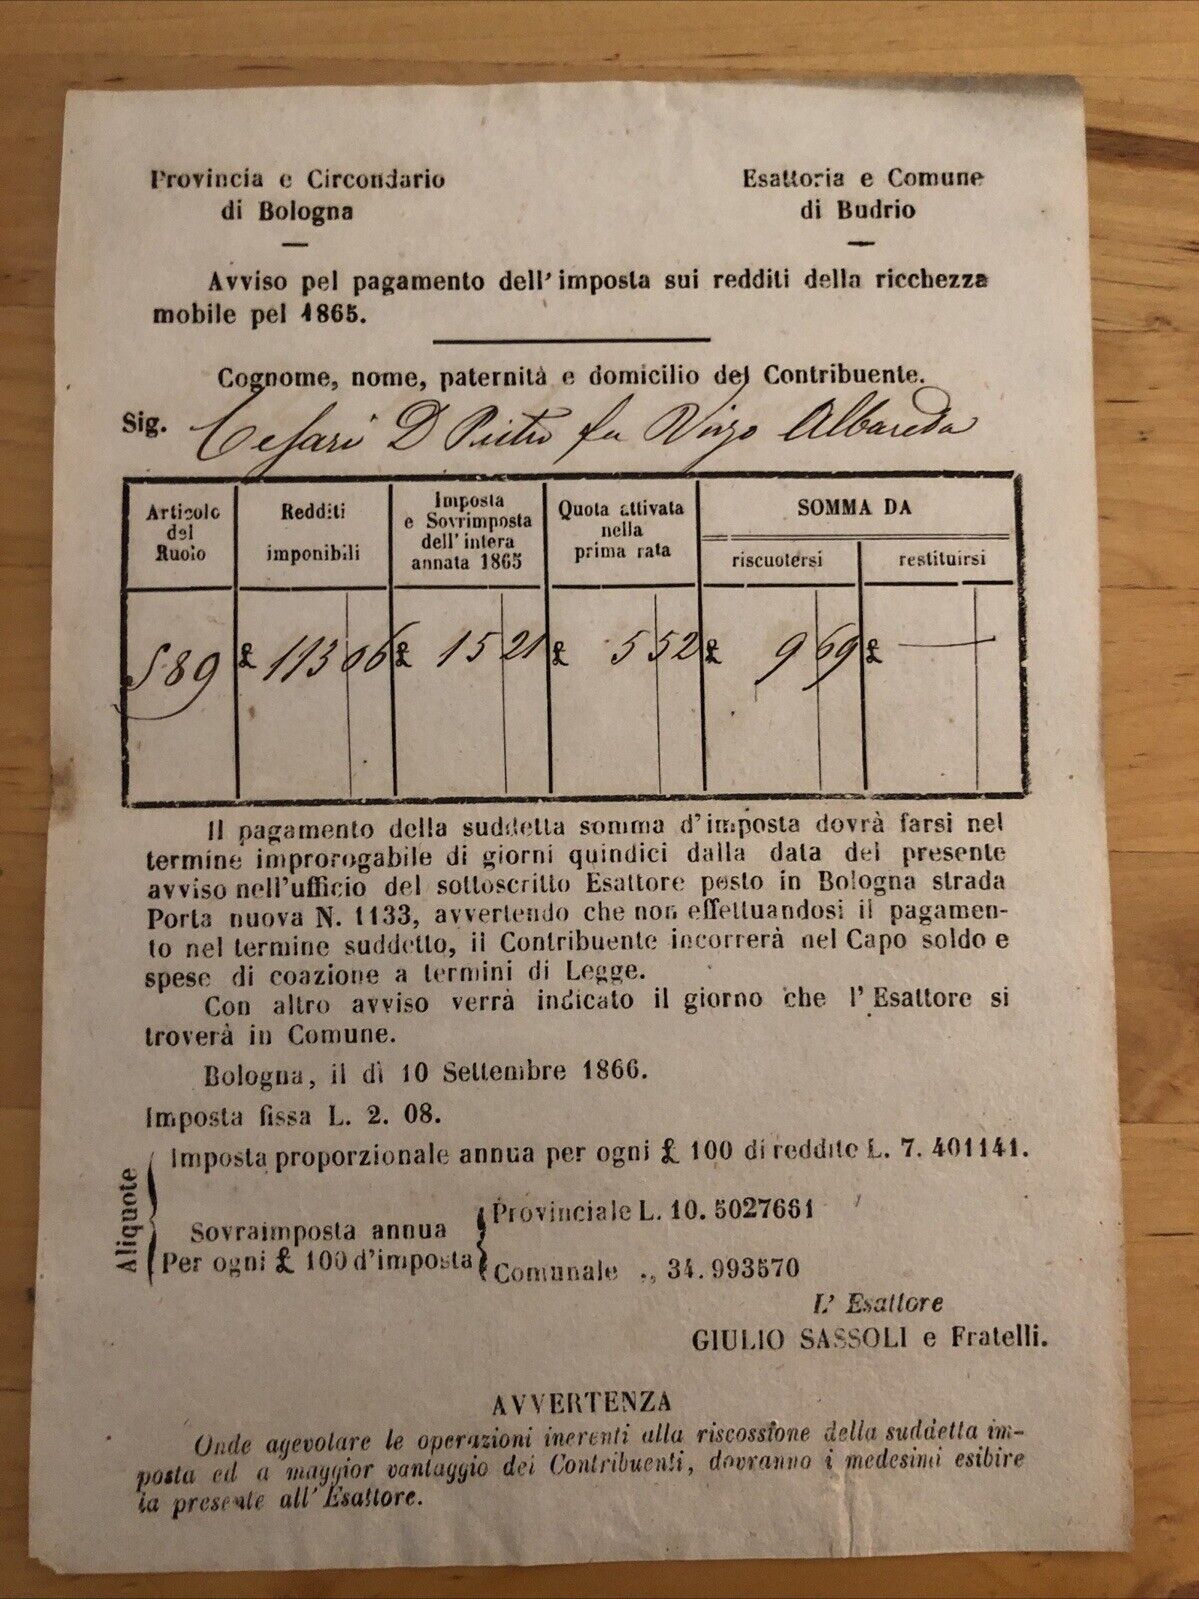 Provincia e Circondario
di Bologna
Esattoria e Comune
di Budrio
Avviso pel pagamento dell'imposta sui redditi della ricchezza
mobile pel 1865.
Cognome, nome, paternità e domicilio del Contribuente.
Sig. Cesari D Pietro fu Albareda
Articolo del Ruolo
Redditi imponibili
Imposta e Sovrimposta dell'intera annata 1865
Quota attivata nella prima rata
SOMMA DA
riscuotersi
restituirsi
589 £ 113 06 £ 15 21 £ 5 52 £ 9 69 £ —
Il pagamento della suddetta somma d'imposta dovrà farsi nel
termine improrogabile di giorni quindici dalla data del presente
avviso nell'ufficio del sottoscritto Esattore posto in Bologna strada
Porta nuova N. 1133, avvertendo che non effettuandosi il pagamen-
to nel termine suddetto, il Contribuente incorrerà nel Capo soldo e
spese di coazione a termini di Legge.
Con altro avviso verrà indicato il giorno che l'Esattore si
troverà in Comune.
Bologna, il dì 10 Settembre 1866.
Imposta fissa L. 2. 08.
Aliquote
Imposta proporzionale annua per ogni £ 100 di reddito L. 7. 401141.
Sovraimposta annua
Per ogni £ 100 d'imposta
Provinciale L. 10. 5027661
Comunale ,, 34. 993570
L' Esattore
GIULIO SASSOLI e Fratelli.
AVVERTENZA
Onde agevolare le operazioni inerenti alla riscossione della suddetta im-
posta ed a maggior vantaggio dei Contribuenti, dovranno i medesimi esibire
la presente all'Esattore.